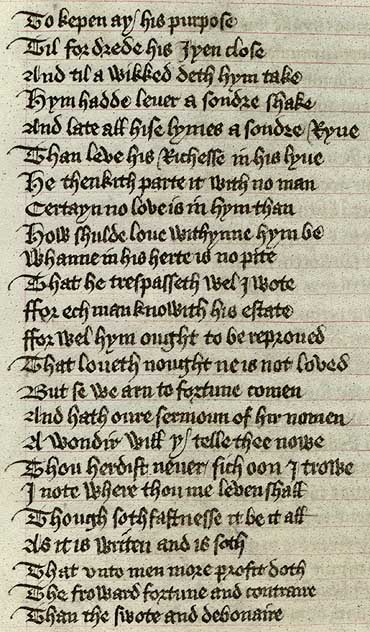 To kepen ay/ his purpose
Til for drede his Iyen close
And til a wikked deth hym take
Hym hadde leuer a sondre shake
And late all hise lymes a sondre / Ryue
Than leve his Richesse in his lyue
He thenkith parte it with no man
Certayn no love is in hym than
How shulde loue withynne hym be
Whanne in his herte is no pite
That he trespasseth wel I wote
ffor ech man knowith his estate
ffor wel hym ought to be reproued
That loueth nought ne is not loved
But se we arn to fortune comen
And hath oure sermoun of hir nomen
A wondir will y/ telle thee nowe
Thou herdist neuer sich oon I trowe
I note where thou me leven shall
Though sothfastnesse it be it all
As it is writen and is soth
That vnto men more profit doth
The froward fortune and contraire
Than the swote and debonaire